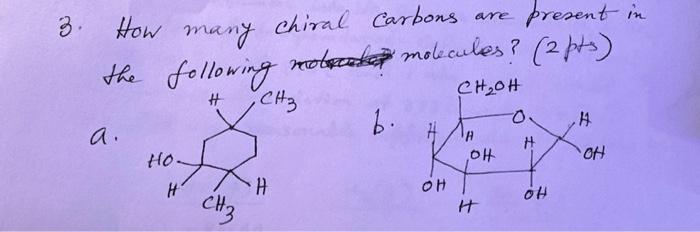 3. How many chiral carbons are present in
the following molecules? (2 pts)
a.
H
CH3
HO
H
CH3
H
b.
CH2OH
O
H
H
H
OH
H
OH
OH
H
OH